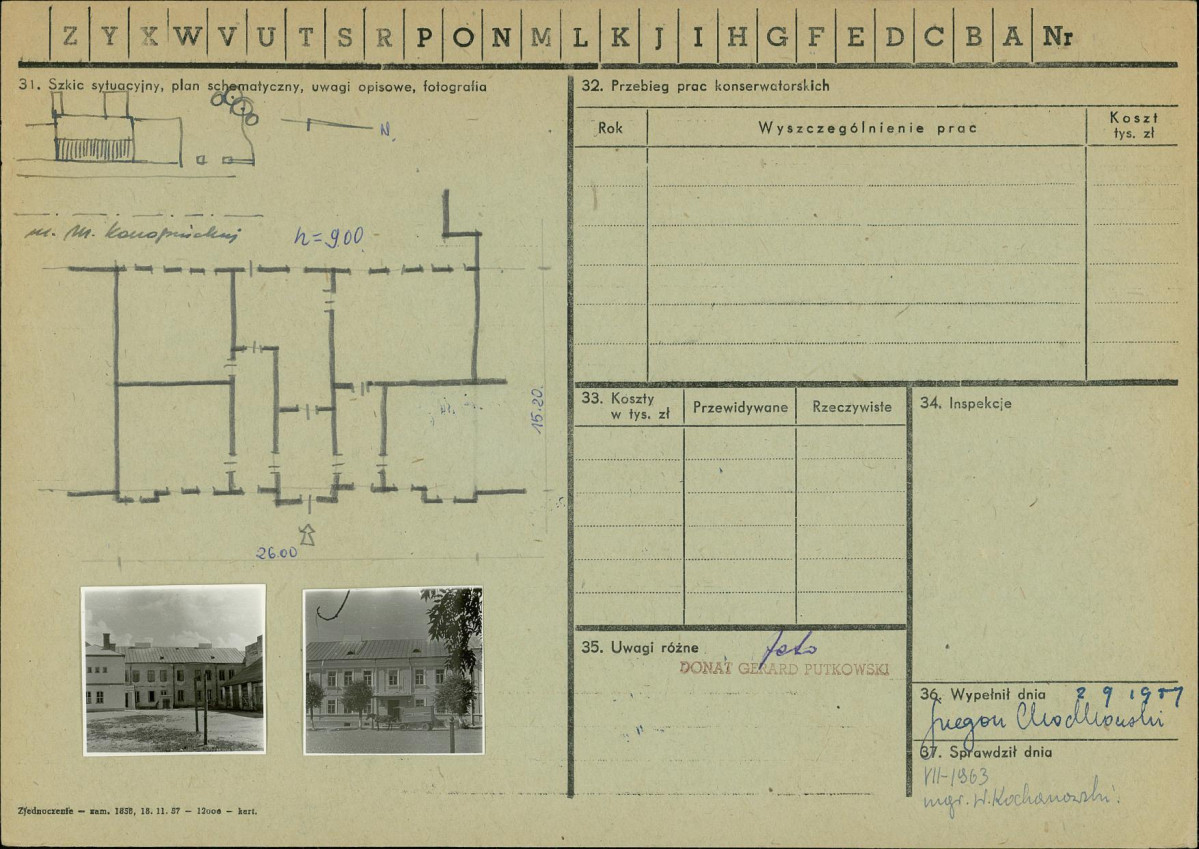 Z Y X W V U T S R P O N M L K J I H G F E D C B A Nr
31. Szkic sytuacyjny, plan schematyczny, uwagi opisowe, fotografia
N.
h = 9.00
15.20.
26.00
32. Przebieg prac konserwatorskich
Rok
Wyszczególnienie prac
Koszt
tys. zł
33. Koszty
w tys. zł
Przewidywane
Rzeczywiste
34. Inspekcje
35. Uwagi różne
foto
DONAT GERARD PUTKOWSKI
36. Wypełnił dnia
37. Sprawdził dnia
VII-1963
mgr. W. Kochanowski.
Zjednoczenie — zam. 1858, 18. 11. 57 — 12000 — kart.